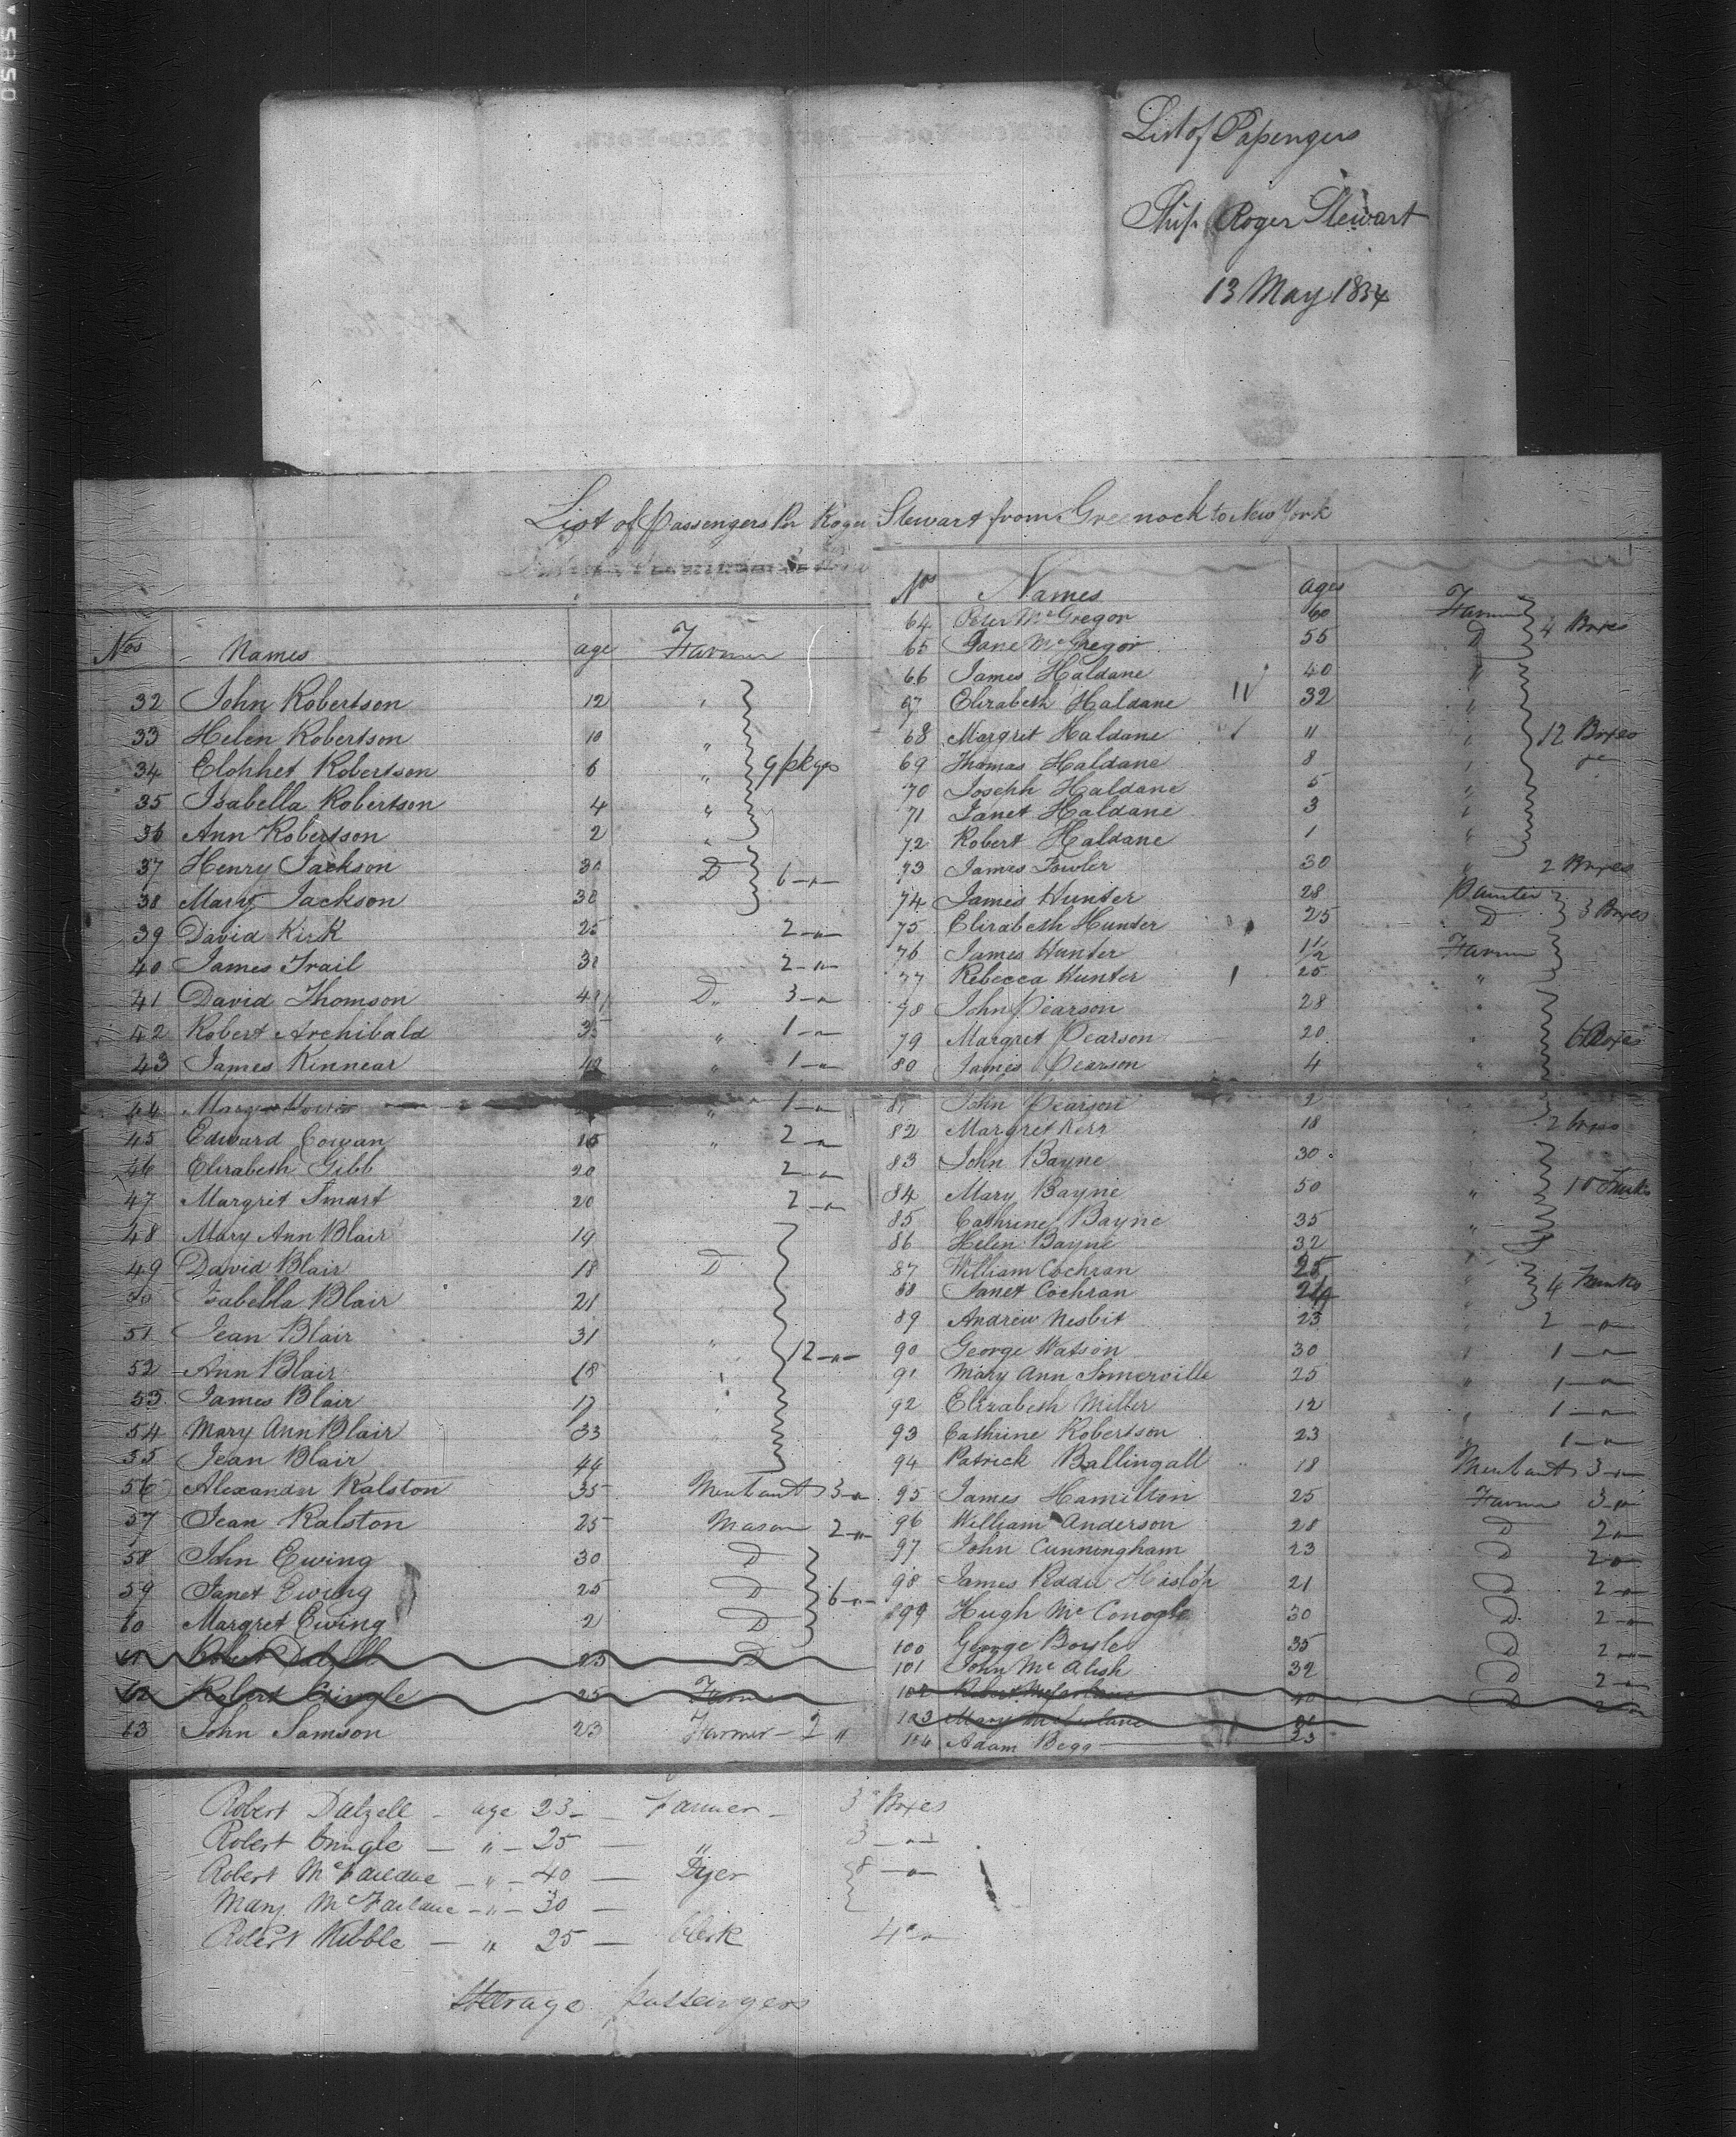 List of Passengers
Ship Roger Stewart
13 May 1834
List of Passengers Pr Roger Stewart from Greenock to New York
Nos Names age Farmer
32 John Robertson 12 "
33 Helen Robertson 10 "
34 Robertson 6 " 9 pkgs
35 Isabella Robertson 4 "
36 Ann Robertson 2 "
37 Henry Jackson 30 D 6 -"-
38 Mary Jackson 30
39 David Kirk 25 2 -"-
40 James Trail 30 2 -"-
41 David Thomson D " 3 -"-
42 Robert Archibald 35 " 1 -"-
43 James Kinnear " 1 -"-
44 Mary " 1 -"-
45 Edward Cowan " 2 -"-
46 Elizabeth Gibb 20 2 -"-
47 Margrit Smart 20 2 -"-
48 Mary Ann Blair 19
49 David Blair 18 D
50 Isabella Blair 21
51 Jean Blair 31 " 12 -"-
52 Ann Blair 18 "
53 James Blair 17 "
54 Mary Ann Blair 33
55 Jean Blair 44
56 Alexander Ralston 35 Merchant 3 -"-
57 Jean Ralston 25 Mason 2 -"-
58 John Ewing 30 D
59 Janet Ewing 25 D 6 -"-
60 Margret Ewing 2 D
61 Robert Dalzell 23 D
62 Robert Cringle 25 Farmer
63 John Samson 23 Farmer - 2 "
Nos Names ages
64 Peter McGregor 60 Farmer 4 Boxes
65 Jane McGregor 55 D
66 James Haldane 40 "
67 Elizabeth Haldane 32 "
68 Margrit Haldane 11 " 12 Boxes
69 Thomas Haldane 8 "
70 Joseph Haldane 5 "
71 Janet Haldane 3 "
72 Robert Haldane 1 "
73 James Fowler 30 " 2 Boxes
74 James Hunter 28 Painter 3 Boxes
75 Elizabeth Hunter 25 D
76 James Hunter 1½ Farmer
77 Rebecca Hunter 25 "
78 John Pearson 28 "
79 Margret Pearson 20 " 6 Boxes
80 James Pearson 4 "
81 John Pearson 2
82 Margret Kerr 18 2 boxes
83 John Bayne 30
84 Mary Bayne 50 " 10 Trunks
85 Cathrine Bayne 35 "
86 Helen Bayne 32
87 William Cochran 25 "
88 Janet Cochran 24 " 4 Trunks
89 Andrew Nesbit 23 " 2 -"-
90 George Watson 30 " 1 -"-
91 Mary Ann Somerville 25 " 1 -"-
92 Elizabeth Miller 12 " 1 -"-
93 Cathrine Robertson 23 " 1 -"-
94 Patrick Ballingall 18 Merchant 3 -"-
95 James Hamilton 25 Farmer 3 -"-
96 William Anderson 28 D 2 -"-
97 John Cunningham 23 D 2 -"-
98 James Peddie Hislop 21 D 2 -"-
99 Hugh McConogle 30 D 2 -"-
100 George Boyle 35 D 2 -"-
101 John McAlish 32 D 2 -"-
102 Robert McFarlane 40 D 2 -"-
103 Mary McFarlane
104 Adam Begg 23
Robert Dalzell - age 23 - Farmer - 3 Boxes
Robert Cringle - " - 25 - " 3 -"-
Robert McFarlane - " - 40 - Dyer 8 -"-
Mary McFarlane - " - 30 -
Robert Kibble - " 25 - Clerk 4 -"-
Steerage passengers